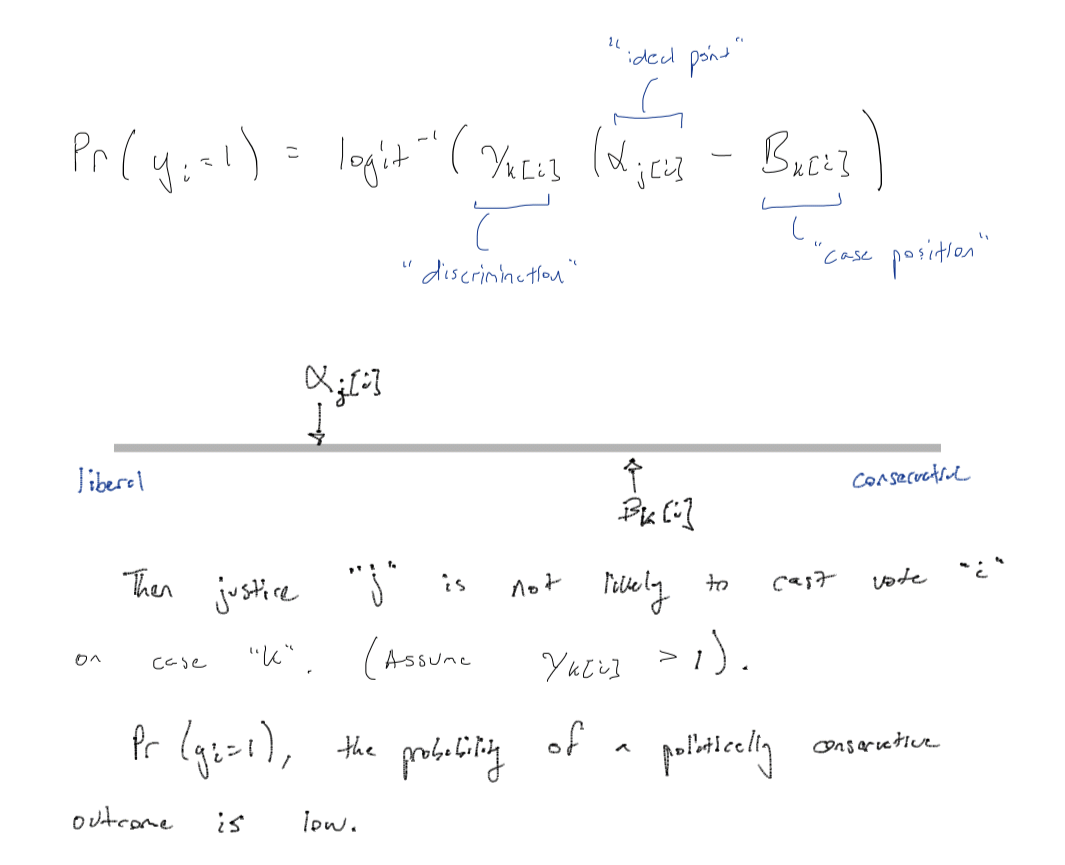 "ideal point"
Pr(y_i=1) = logit^-1(γ_k[i](α_j[i] - B_k[i])
"discrimination"
"case position"
α_j[i]
liberal
conservative
B_k[i]
Then justice "j" is not likely to cast vote "i"
on case "k". (Assume γ_k[i] > 1).
Pr(y_i=1), the probability of a politically conservative
outcome is low.